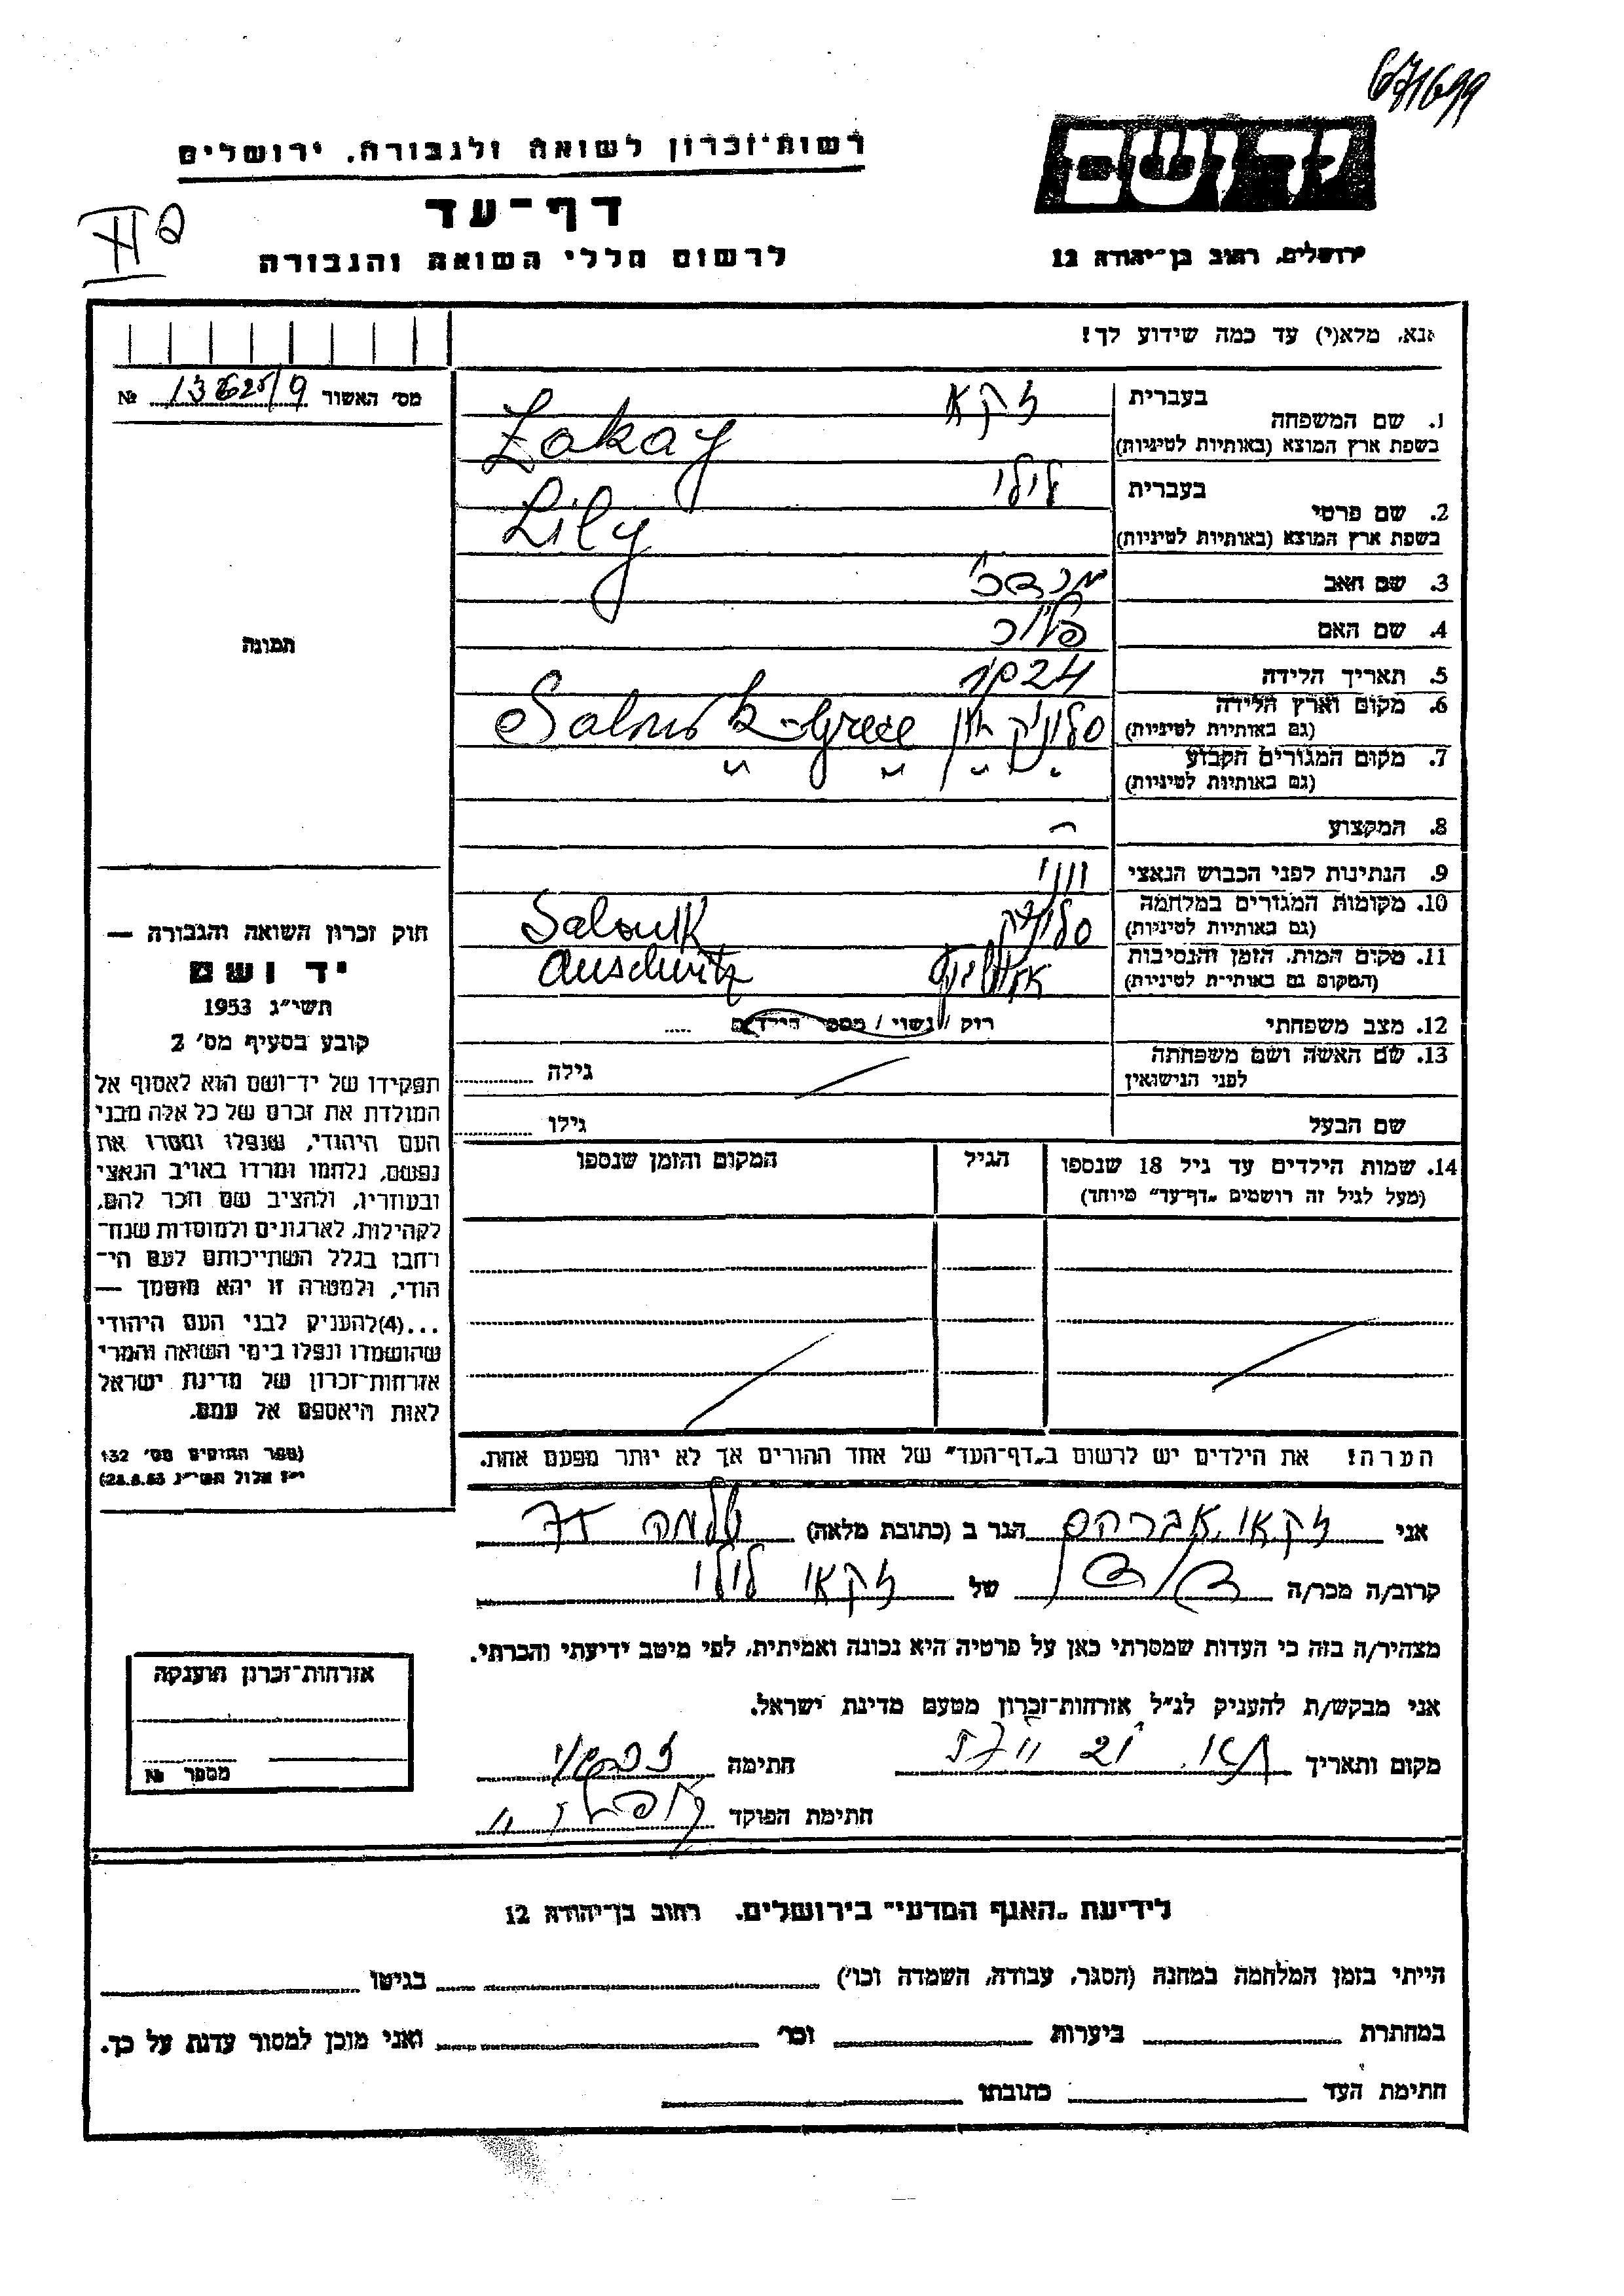 671699
רשות־זכרון לשואה ולגבורה, ירושלים
יד ושם
דף־עד
לרשום חללי השואה והגבורה
ירושלים, רחוב בן־יהודה 12
אנא, מלא(י) עד כמה שידוע לך!
מס׳ האשור №
1. שם המשפחה
בעברית
זקא
בשפת ארץ המוצא (באותיות לטיניות)
Zakay
2. שם פרטי
בעברית
לילי
בשפת ארץ המוצא (באותיות לטיניות)
Lily
3. שם האב
מרדכי
4. שם האם
5. תאריך הלידה
1924
6. מקום וארץ הלידה
(גם באותיות לטיניות)
סלוניק יוון Salonik-Greece
7. מקום המגורים הקבוע
(גם באותיות לטיניות)
" " " "
8. המקצוע
-
9. הנתינות לפני הכבוש הנאצי
יווני
10. מקומות המגורים במלחמה
(גם באותיות לטיניות)
סלוניק Salonik
11. מקום המות, הזמן והנסיבות
(המקום גם באותיות לטיניות)
אושויץ Auschwitz
12. מצב משפחתי
רווק / נשוי / מספר הילדים .....
13. שם האשה ושם משפחתה
לפני הנישואין
גילה
שם הבעל
גילו
14. שמות הילדים עד גיל 18 שנספו
(מעל לגיל זה רושמים „דף־עד״ מיוחד)
הגיל
המקום והזמן שנספו
הערה! את הילדים יש לרשום ב„דף־העד״ של אחד ההורים אך לא יותר מפעם אחת.
תמונה
חוק זכרון השואה והגבורה —
יד ושם
תשי״ג 1953
קובע בסעיף מס׳ 2
תפקידו של יד־ושם הוא לאסוף אל
המולדת את זכרם של כל אלה מבני
העם היהודי, שנפלו ומסרו את
נפשם, נלחמו ומרדו באויב הנאצי
ובעוזריו, ולהציב שם וזכר להם,
לקהילות, לארגונים ולמוסדות שנח־
רבו בגלל השתייכותם לעם הי־
הודי, ולמטרה זו יהא מוסמך —
...(4)להעניק לבני העם היהודי
שהושמדו ונפלו בימי השואה והמרי
אזרחות־זכרון של מדינת ישראל
לאות היאספם אל עמם.
(ספר החוקים מס׳ 132
י״ז אלול תשי״ג 28.8.53)
אני זקאי אברהם הגר ב (כתובת מלאה) שלמה
קרוב/ה מכר/ה בן דוד של זקאי לילי
מצהיר/ה בזה כי העדות שמסרתי כאן על פרטיה היא נכונה ואמיתית, לפי מיטב ידיעתי והכרתי.
אני מבקש/ת להעניק לנ״ל אזרחות־זכרון מטעם מדינת ישראל.
מקום ותאריך
חתימה
חתימת הפוקד
אזרחות־זכרון הוענקה
מספר №
לידיעת „האגף המדעי״ בירושלים, רחוב בן־יהודה 12
הייתי בזמן המלחמה במחנה (הסגר, עבודה, השמדה וכו׳) בגיטו
במחתרת ביערות וכו׳ ואני מוכן למסור עדות על כך.
חתימת העד כתובתו